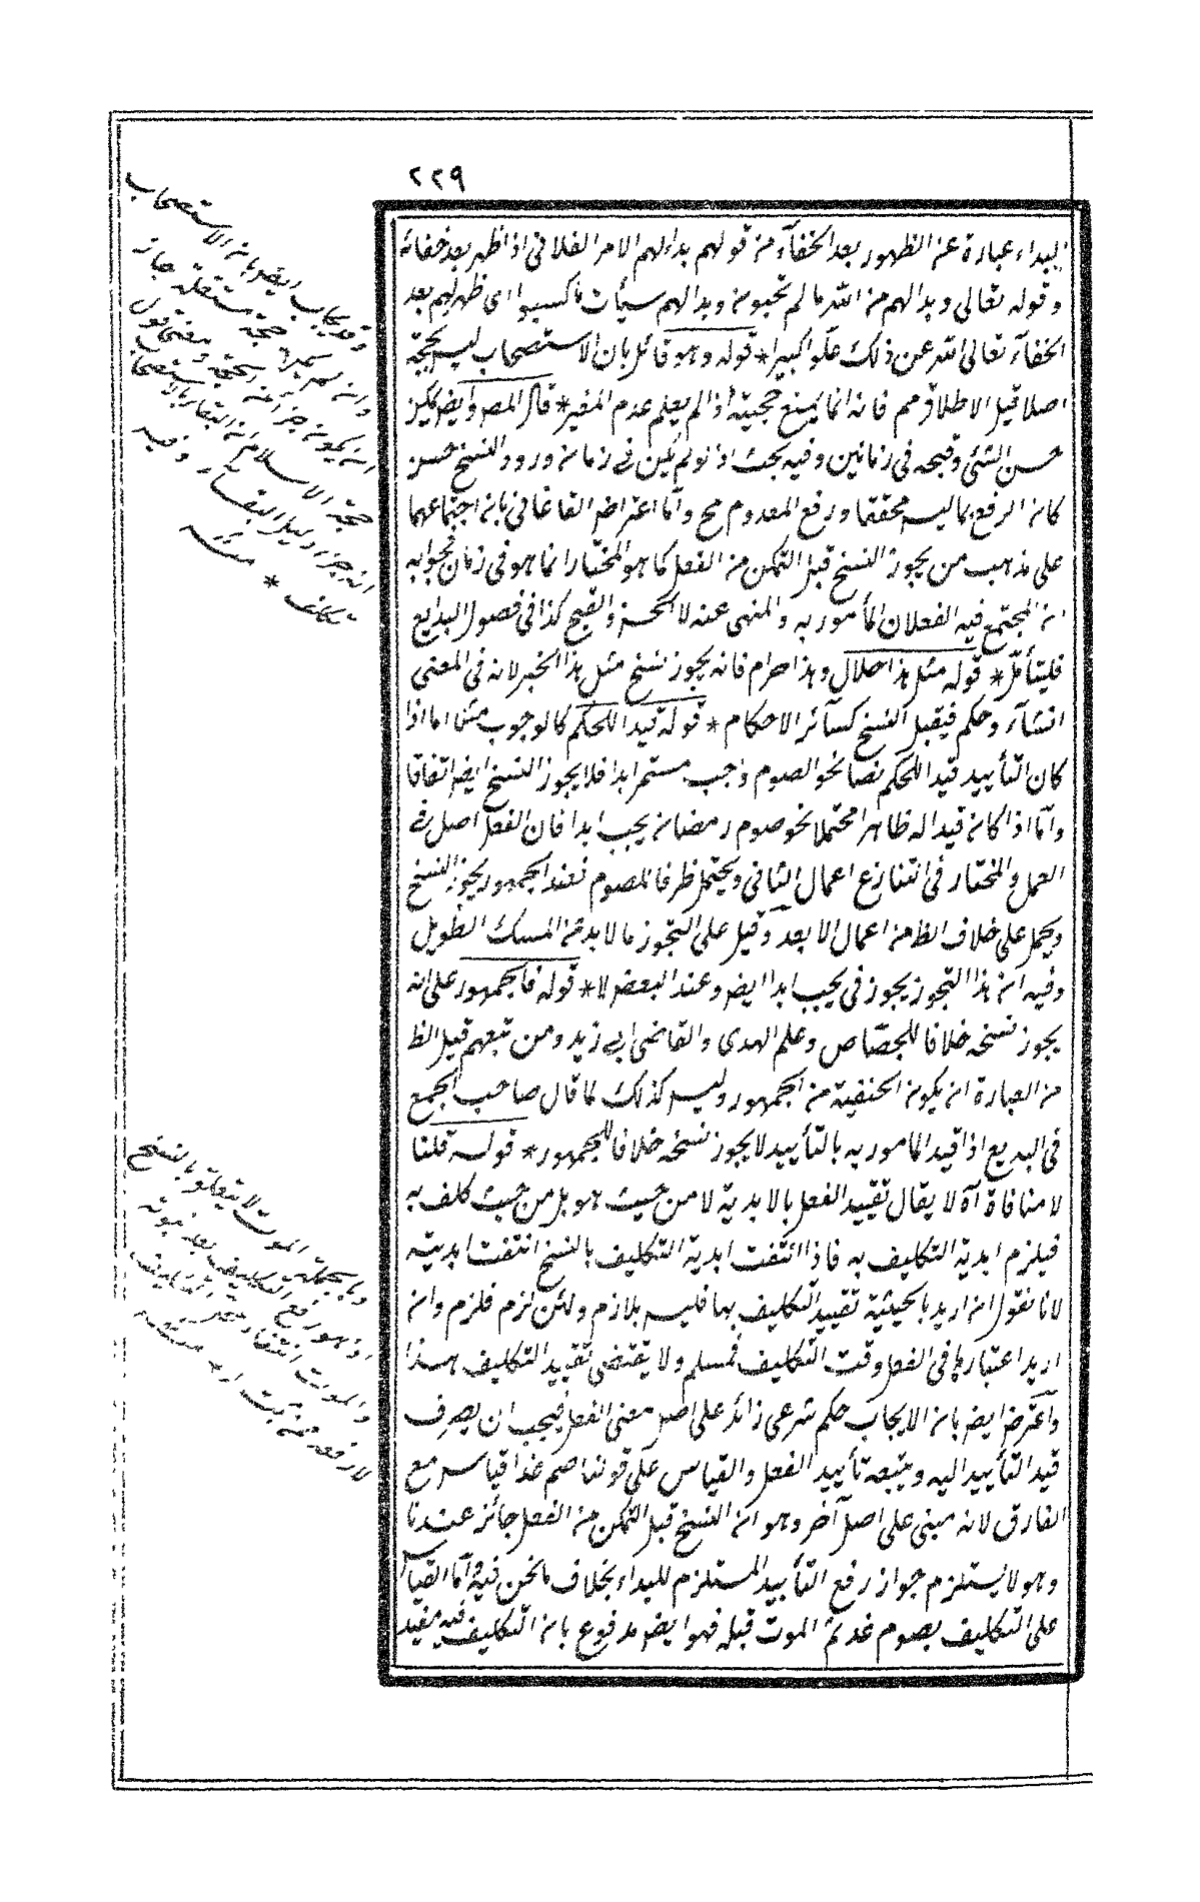 ٢٢٩
البداء عبارة عن الظهور بعد الخفآء من قولهم بداء لهم الامر الفلانى اذا ظهر بعد خفائه
وقوله تعالى وبدا لهم من الله ما لم تحبون وبدا لهم سيأت ما كسبوا اى ظهر لهم بعد
الخفآء تعالى الله عن ذلك علوا كبيرا * قوله وهو قائل بان الاستصحاب ليس بحجة
اصلا قيل الاطلاق مم فانه انما يمنع حجيته اذا لم يعلم عدم المغير * قال المص وايضا يمكن
حسن الشئ وقبحه فى زمانين وفيه بحث اذ لو لم يكن فى زمان ورود النسخ حسن
كان الرفع لما ليس محققا ورفع المعدوم مح وأما اعتراض القاغانى بان اجتماعهما
على مذهب من يجوز النسخ قبل التمكن من الفعل كما هو المختار انما هو فى زمان فجوابه
ان المجتمع فيه الفعلان المأمور به والمنهى عنه لا الحسن والقبح كذا فى فصول البدايع
فليتأمل * قوله مثل هذا حلال وهذا حرام فانه يجوز نسخ مثل هذا الخبر لانه فى المعنى
انشآء وحكم فيقبل النسخ كسآئر الاحكام * قوله قيدا للحكم كالوجوب مثلا اما اذا
كان التأبيد قيدا للحكم نصا نحو الصوم واجب مستمر ابدا فلا يجوز النسخ ايضا اتفاقا
وأما اذا كان قيدا له ظاهرا محتملا نحو صوم رمضان يجب ابدا فان الفعل اصل فى
العمل والمختار فى التنازع اعمال الثانى ويحتمل ظرفا للصوم فعند الجمهور يجوز النسخ
ويحمل على خلاف الظ من اعمال الابعد وقيل على التجوز مالا بد من المسك الطويل
وفيه ان هذا التجوز يجوز فى يجب ابدا ايضا وعند البعض لا * قوله فالجمهور على انه
يجوز نسخه خلافا للجصاص وعلم الهدى والقاضى ابى زيد ومن تبعهم قيل الظ
من العبارة ان يكون الحنفية من الجمهور وليس كذلك لما قال صاحب المجمع
فى البديع اذا قيد المامور به بالتأبيد لا يجوز نسخه خلافا للجمهور * قوله قلنا
لا منافاة آه لا يقال تقييد الفعل بالابدية لا من حيث هو بل من حيث كلف به
فيلزم ابدية التكليف به فاذا انتفت ابدية التكليف بالنسخ انتفت ابديته
لانا نقول ان اريد بالحيثية تقييد التكليف بها فليس بلازم ولئن لزم فلزم وان
اريد اعتبارها فى الفعل وقت التكليف فمسلم ولا يقتضى تقييد التكليف هذا
واعترض ايضا بان الايجاب حكم شرعى زائد على اصل معنى الفعل فيجب ان يصرف
قيد التأبيد اليه ويتبعه تأبيد الفعل والقياس على قولنا صم غدا قياس مع
الفارق لانه مبنى على اصل آخر وهو ان النسخ قبل التمكن من الفعل جائز عندنا
وهو لا يستلزم جواز رفع التأبيد المستلزم للبداء بخلاف ما نحن فيه وأما القياس
على التكليف بصوم غد ثم الموت قبله فهو ايضا مدفوع بان التكليف فيه مقيد
وقد يجاب ايضا بان الاستصحاب
وان لم يكن حجة مستقلة جاز
ان يكون جزأ من الحجة ومعنى قول
حجة الاسلام ان البقاء بالاستصحاب
انه جزء دليل البقاء وفيه
تكلف * منه
وبالجملة الموت لا يتعلق بالنسخ
اذ هو رفع التكليف بعد ثبوته
والموت انتفاء التكليف
لا رفعه منه